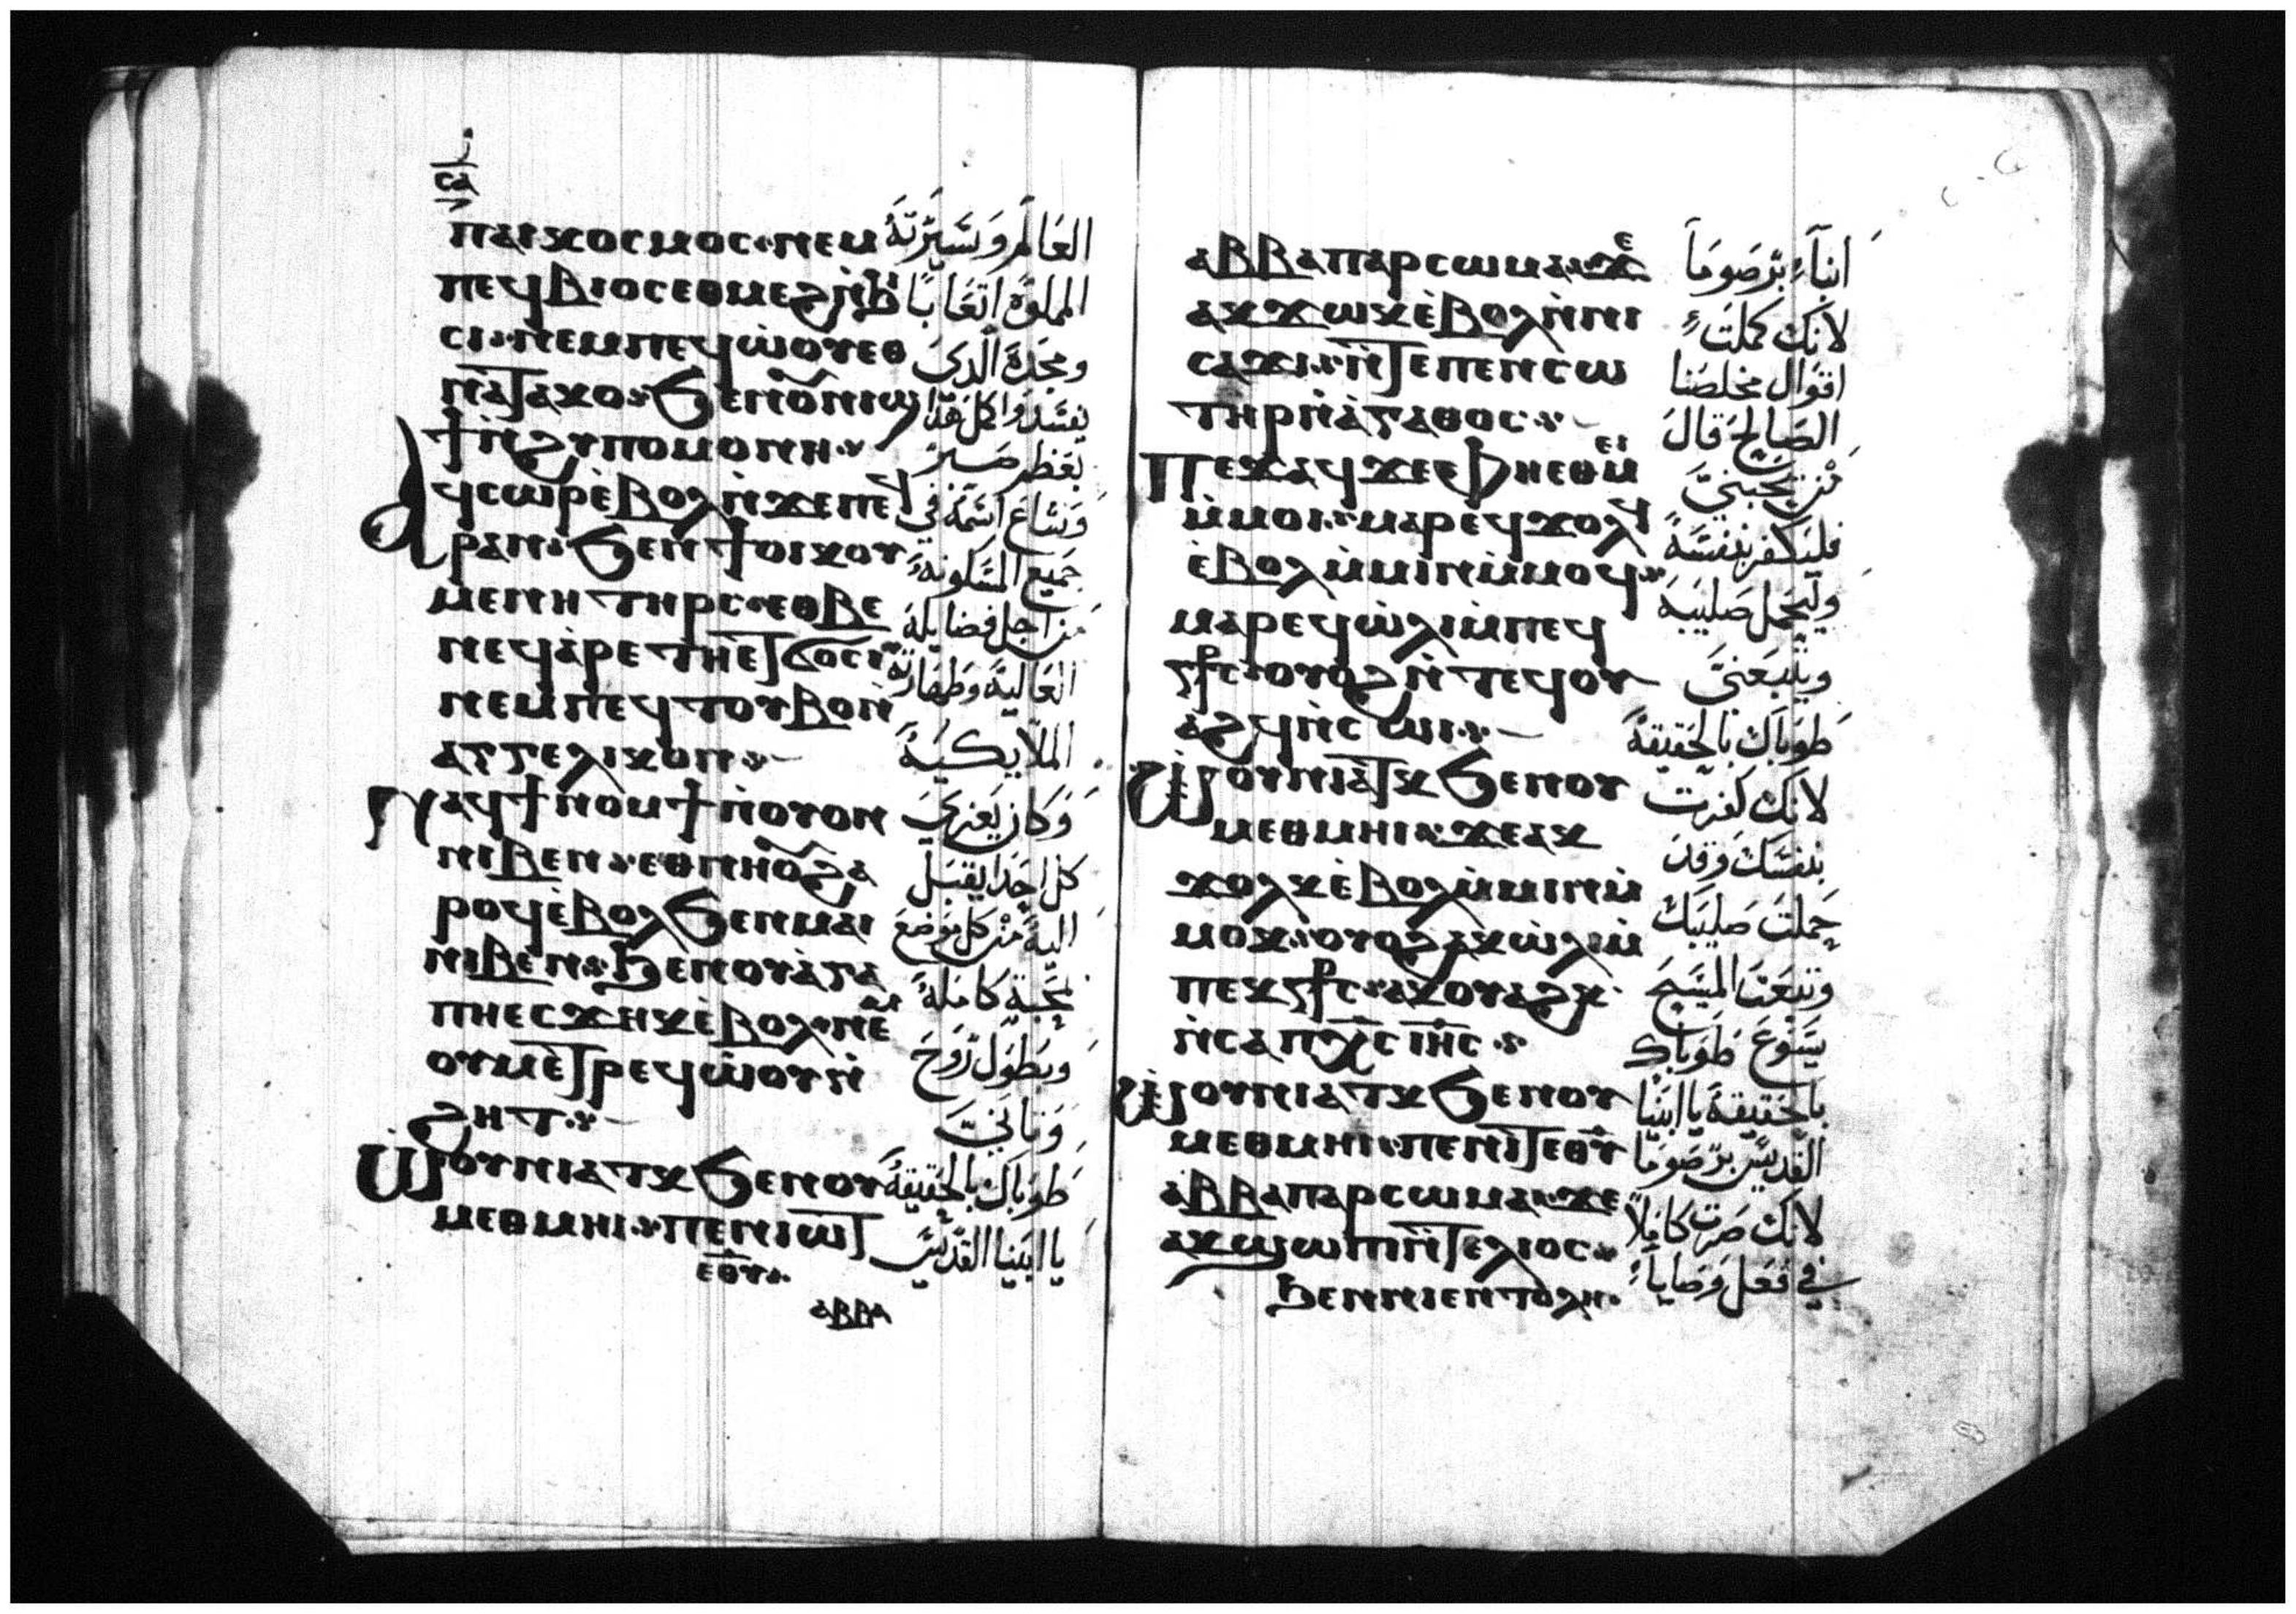 ⲥⲁ
ⲡⲁⲓⲕⲟⲥⲙⲟⲥ ⲛⲉⲙ
ⲡⲉϥⲃⲓⲟⲥ ⲉⲑⲙⲉϩ ⲛ̀ϧⲓ
ⲥⲓ ⲛⲉⲙ ⲡⲉϥⲱ̀ⲟⲩ ⲉⲑ
ⲛⲁⲧⲁⲕⲟ ϧⲉⲛ ⲟⲩⲛⲓϣ
ϯ ⲛ̀ϩⲩⲡⲟⲙⲟⲛⲏ
ⲁϥⲥⲱⲣ ⲉ̀ⲃⲟⲗ ⲛ̀ϫⲉ ⲡⲉϥ
ⲣⲁⲛ ϧⲉⲛ ϯⲟⲓⲕⲟⲩ
ⲙⲉⲛⲏ ⲧⲏⲣⲥ ⲉⲑⲃⲉ
ⲛⲉϥⲁ̀ⲣⲉⲧⲏ ⲉⲧϭⲟⲥⲓ
ⲛⲉⲙ ⲡⲉϥⲧⲟⲩⲃⲟ ⲛ̀
ⲁⲅⲅⲉⲗⲓⲕⲟⲛ
ϣⲁϥϯⲛⲟⲙϯ ⲛ̀ⲟⲩⲟⲛ
ⲛⲓⲃⲉⲛ ⲉⲑⲛⲏⲟⲩ ϩⲁ
ⲣⲟϥ ⲉ̀ⲃⲟⲗ ϧⲉⲛ ⲙⲁⲓ
ⲛⲓⲃⲉⲛ ϧⲉⲛ ⲟⲩⲁ̀ⲅⲁ
ⲡⲏ ⲉⲥϫⲏⲕ ⲉ̀ⲃⲟⲗ ⲛⲉⲙ
ⲟⲩⲙⲉⲧⲣⲉϥⲱ̀ⲟⲩⲛ̀
ϩⲏⲧ
ⲱ̀ⲟⲩⲛⲓⲁⲧⲕ ϧⲉⲛ ⲟⲩ
ⲙⲉⲑⲙⲏⲓ ⲡⲉⲛⲓⲱⲧ
ⲉⲑⲩ
ⲁⲃⲃⲁ
العالم وسيرته
المملوة اتعابا
ومجده الذى
بعظم صبر
وشاع اسمه في
جميع المسكونة
من اجل فضايله
العالية وطهارته
الملايكية
وكان يعزي
كل احد يقبل
اليه من كل موضع
بمحبة كاملة
وبطول روح
وتاني
طوباك بالحقيقة
يا ابينا القديس
ⲁⲃⲃⲁ ⲡⲁⲣⲥⲱⲙⲁ ϫⲉ
ⲁⲕϫⲱⲕ ⲉ̀ⲃⲟⲗ ⲛ̀ⲛⲓ
ⲥⲁϫⲓ ⲛ̀ⲧⲉ ⲡⲉⲛⲥⲱ
ⲧⲏⲣ ⲛ̀ⲁ̀ⲅⲁⲑⲟⲥ
ⲡⲉϫⲁϥ ϫⲉ ⲫⲏⲉⲑⲙⲉⲓ
ⲙ̀ⲙⲟⲓ ⲙⲁⲣⲉϥϫⲟⲗϥ
ⲉ̀ⲃⲟⲗ ⲙ̀ⲙⲓⲛ ⲙ̀ⲙⲟϥ
ⲙⲁⲣⲉϥⲱ̀ⲗⲓ ⲙ̀ⲡⲉϥ
ⲥϯⲥ ⲟⲩⲟϩ ⲛ̀ⲧⲉϥⲟⲩ
ⲁϩϥ ⲛ̀ⲥⲱⲓ
ⲱ̀ⲟⲩⲛⲓⲁⲧⲕ ϧⲉⲛ ⲟⲩ
ⲙⲉⲑⲙⲏⲓ ϫⲉ ⲁⲕ
ϫⲟⲗⲕ ⲉ̀ⲃⲟⲗ ⲙ̀ⲙⲓⲛ ⲙ̀
ⲙⲟⲕ ⲟⲩⲟϩ ⲁⲕⲱ̀ⲗⲓ ⲙ̀
ⲡⲉⲕⲥϯⲥ ⲁⲕⲟⲩⲁϩⲕ
ⲛ̀ⲥⲁ ⲡⲭⲥ ⲓⲏⲥ
ⲱ̀ⲟⲩⲛⲓⲁⲧⲕ ϧⲉⲛ ⲟⲩ
ⲙⲉⲑⲙⲏⲓ ⲡⲉⲛⲓⲧ ⲉⲑⲩ
ⲁⲃⲃⲁ ⲡⲁⲣⲥⲱⲙⲁ ϫⲉ
ⲁⲕϣⲱⲡⲓ ⲛ̀ⲧⲉⲗⲓⲟⲥ
ϧⲉⲛ ⲛⲓⲉⲛⲧⲟⲗⲏ
انباء برصوما
لانك كملت
اقوال مخلصنا
الصالح قال
من يحبني
فليكفر بنفسه
وليحمل صليبه
ويتبعني
طوباك بالحقيقة
لانك كفرت
بنفسك وقد
حملت صليبك
وتبعت المسيح
يسوع طوباك
بالحقيقة يا ابينا
القديس برصوما
لانك صرت كاملا
في فعل وصايا